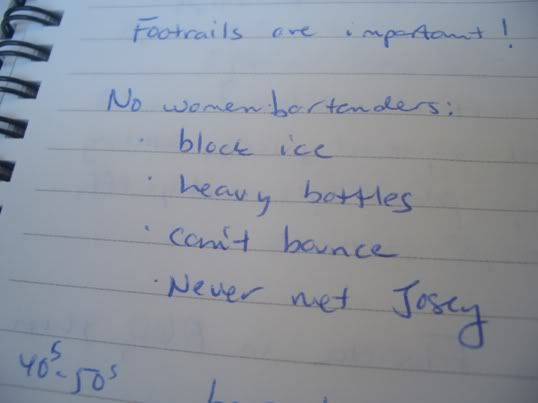 Footrails are important!
No women bartenders:
· block ice
· heavy bottles
· can't bounce
· Never met Josey
40s-50s